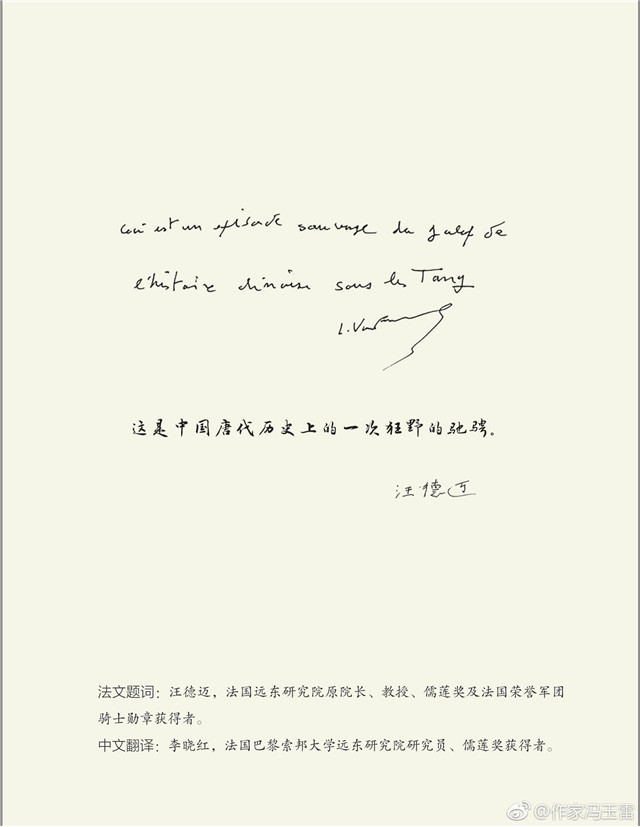 est un épisode sauvage du galop de
l'histoire chinoise sous les Tang
L. Van
这是中国唐代历史上的一次狂野的驰骋。
汪德迈
法文题词：汪德迈，法国远东研究院原院长、教授、儒莲奖及法国荣誉军团
骑士勋章获得者。
中文翻译：李晓红，法国巴黎索邦大学远东研究院研究员、儒莲奖获得者。
@作家冯玉雷